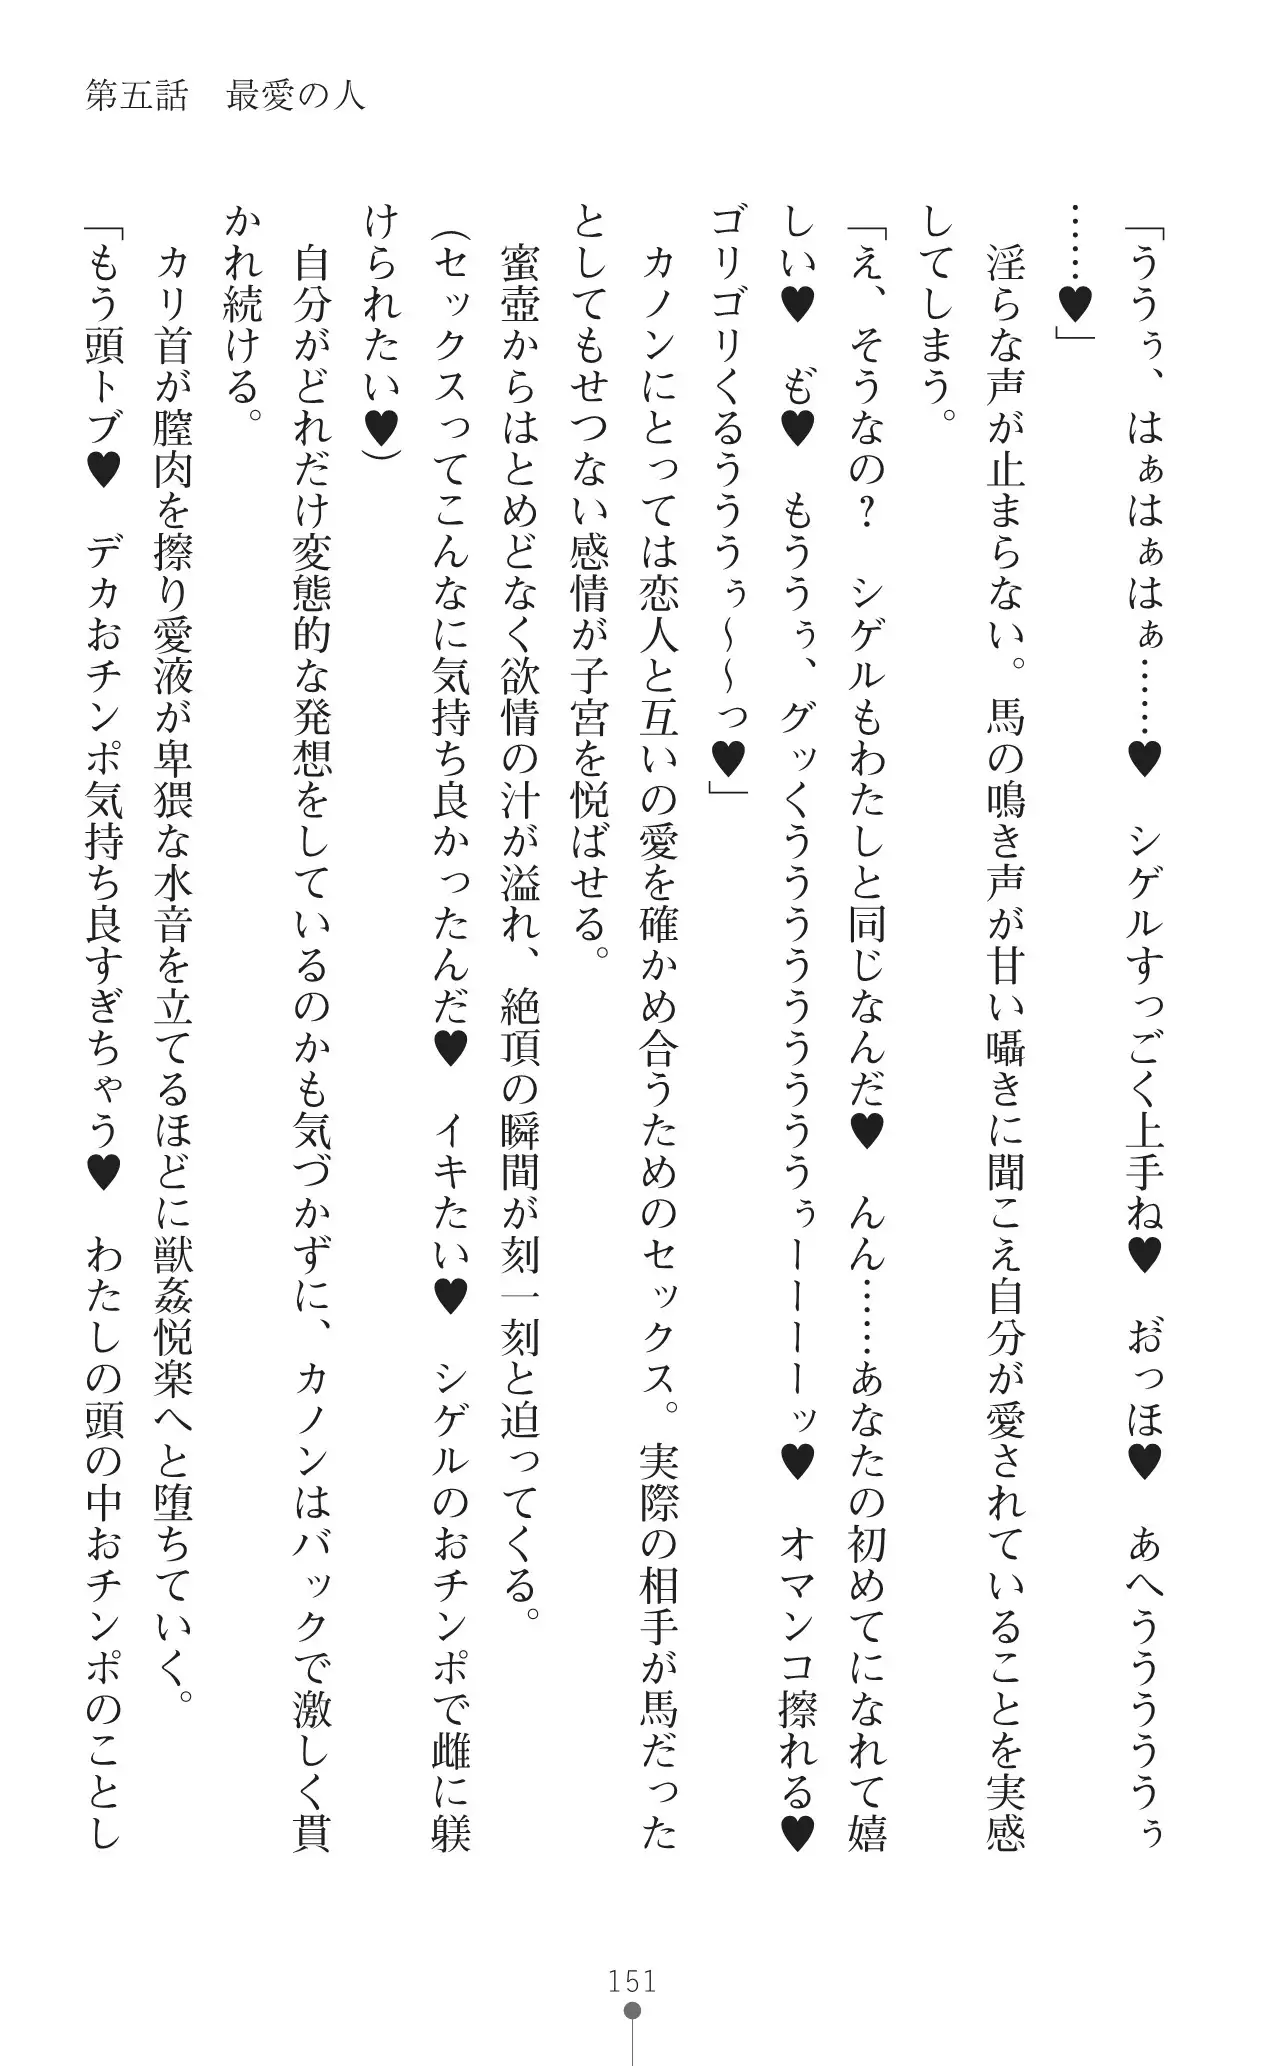 第五話　最愛の人
「ううぅ、はぁはぁはぁ……♥　シゲルすっごく上手ね♥　お゛っほ♥　あへうううううぅ
……♥」
　淫らな声が止まらない。馬の鳴き声が甘い囁きに聞こえ自分が愛されていることを実感
してしまう。
「え、そうなの？　シゲルもわたしと同じなんだ♥　んん……あなたの初めてになれて嬉
しい♥　お゛♥　もううぅ、グッくうううううううううぅーーーーッ♥　オマンコ擦れる♥
ゴリゴリくるうううぅ～～っ♥」
　カノンにとっては恋人と互いの愛を確かめ合うためのセックス。実際の相手が馬だった
としてもせつない感情が子宮を悦ばせる。
　蜜壺からはとめどなく欲情の汁が溢れ、絶頂の瞬間が刻一刻と迫ってくる。
（セックスってこんなに気持ち良かったんだ♥　イキたい♥　シゲルのおチンポで雌に躾
けられたい♥）
　自分がどれだけ変態的な発想をしているのかも気づかずに、カノンはバックで激しく貫
かれ続ける。
　カリ首が膣肉を擦り愛液が卑猥な水音を立てるほどに獣姦悦楽へと堕ちていく。
「もう頭トブ♥　デカおチンポ気持ち良すぎちゃう♥　わたしの頭の中おチンポのことし
151